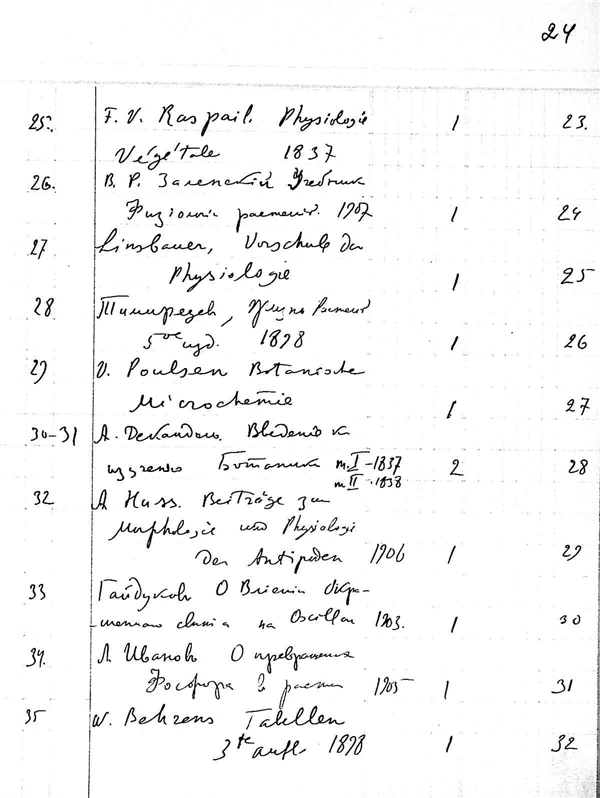 24
25. F. V. Raspail. Physiologie 1 23.
Végétale 1837
26. В. Р. Заленский Учебник
Физиологии растений. 1907 1 24
27 Linsbauer, Vorschule der
Physiologie 1 25
28 Тимирязев, Жизнь Растений
5ое изд. 1898 1 26
29 V. Poulsen Botanische
Microchemie 1 27
30-31 А. Декандоль. Введение к
изучению Ботаники т. I - 1837 2 28
т. II - 1838
32 A Huss. Beiträge zur
Morphologie und Physiologie
der Antipoden 1906 1 29
33 Гайдуковъ О Влиянии Окра-
шенного света на Oscillar 1903. 1 30
34. Л Ивановъ О превращении
Фосфора в растен 1905 1 31
35 W. Behrens Tabellen
3te aufl. 1898 1 32